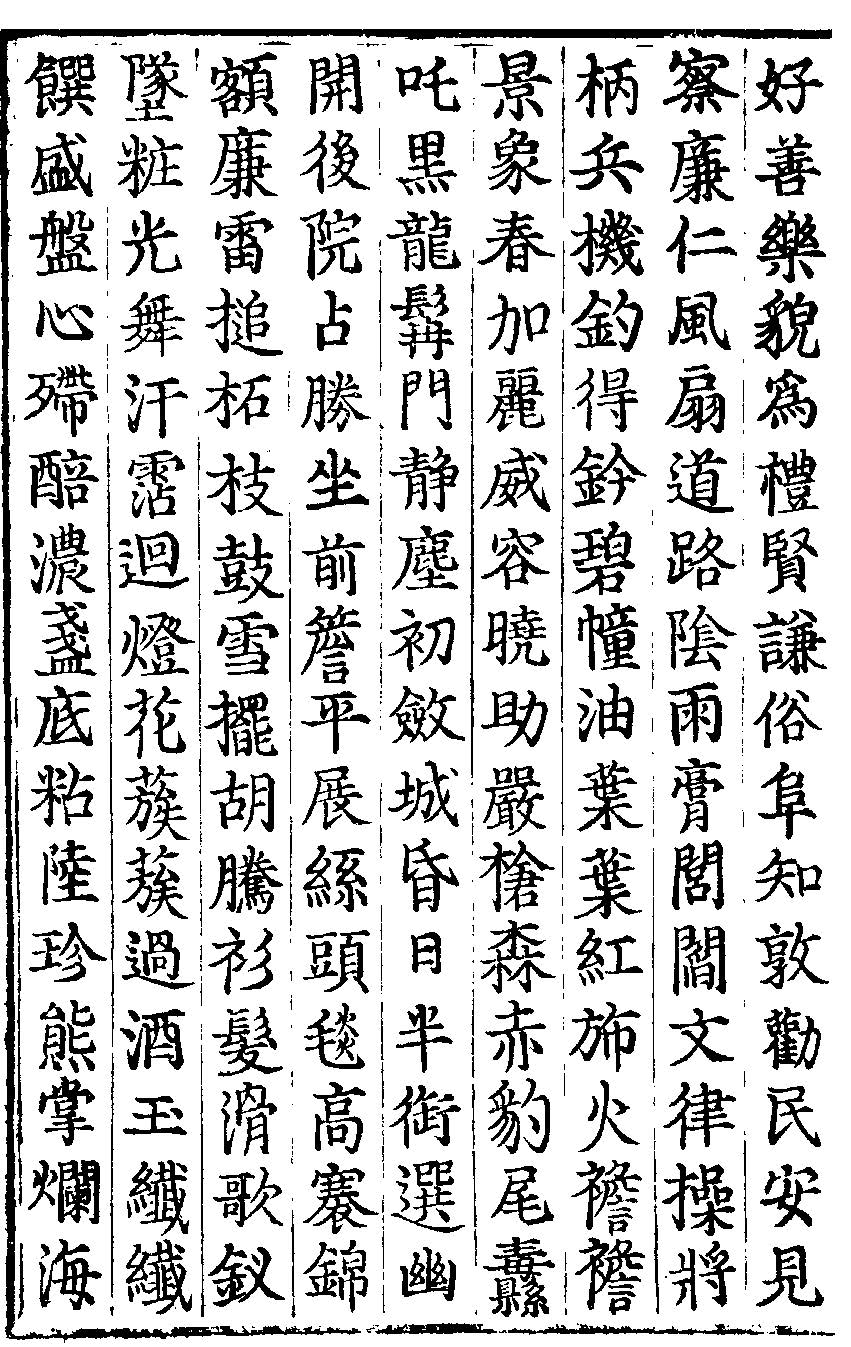 好善樂貌爲禮賢謙俗阜知敦勸民安見
察廉仁風扇道路陰雨膏閭閻文律操將
柄兵機釣得鈐碧幢油葉葉紅旆火襜襜
景象春加麗威容曉助嚴槍森赤豹尾纛
吒黑龍髯門静塵初斂城昏日半銜選幽
開後院占勝坐前簷平展絲頭毯高褰錦
額廉雷搥柘枝鼓雪擺胡騰衫髮滑歌釵
墜粧光舞汗霑迴燈花蔟蔟過酒玉纖纖
饌盛盤心殢醅濃盞底粘陸珍熊掌爛海